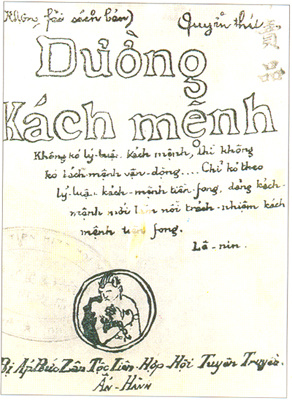 (Không fải sách bán) Quyển thứ
品
Đường
Kách mệnh
Không kó lý-luận kách mệnh, thì không
kó kách mệnh vận-động.... Chỉ kó theo
lý-luận kách-mệnh tiền-fong, đảng kách-
mệnh mới làm nổi trách-nhiệm kách
mệnh tiền fong.
Lê-nin.
Bị Áp Bức Zân Tộc Liên-Hợp Hội Tuyên Truyền
Ấn-Hành